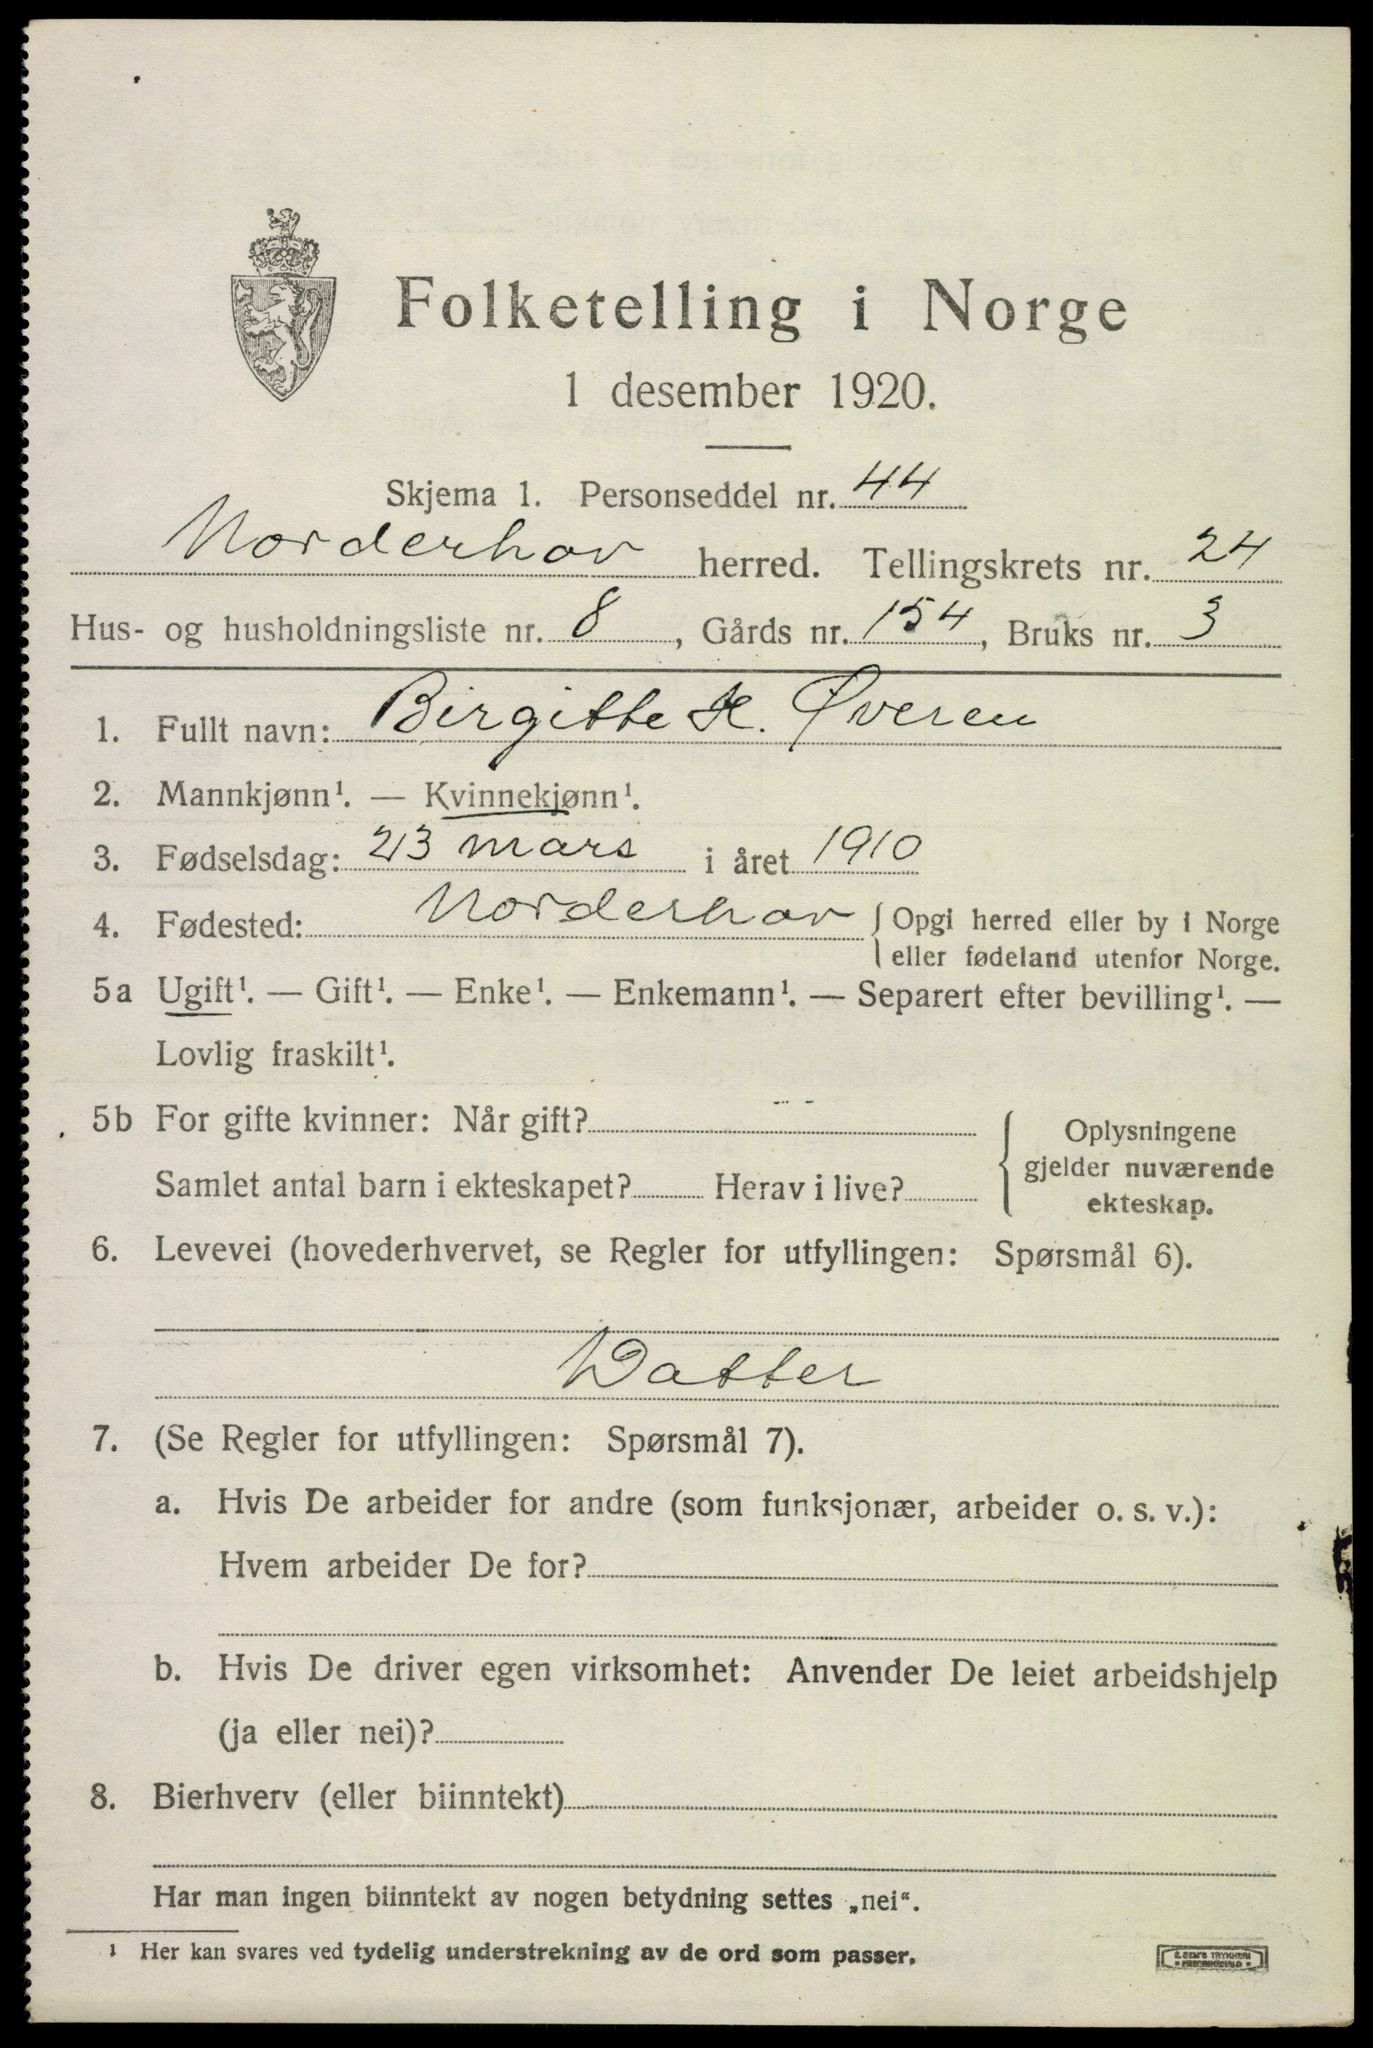 Folketelling i Norge
1 desember 1920.
Skjema 1. Personseddel nr. 44
Norderhov herred. Tellingskrets nr. 24
Hus- og husholdningsliste nr. 8, Gårds nr. 154, Bruks nr. 3
1. Fullt navn: Birgitte H. Øveren
2. Mannkjønn¹. — Kvinnekjønn¹.
3. Fødselsdag: 23 mars i året 1910
4. Fødested: Norderhov { Opgi herred eller by i Norge
eller fødeland utenfor Norge.
5a Ugift¹. — Gift¹. — Enke¹. — Enkemann¹. — Separert efter bevilling¹. —
Lovlig fraskilt¹.
5b For gifte kvinner: Når gift?
Samlet antal barn i ekteskapet? Herav i live?
{ Oplysningene
gjelder nuværende
ekteskap.
6. Levevei (hovederhvervet, se Regler for utfyllingen: Spørsmål 6).
Datter
7. (Se Regler for utfyllingen: Spørsmål 7).
a. Hvis De arbeider for andre (som funksjonær, arbeider o. s. v.):
Hvem arbeider De for?
b. Hvis De driver egen virksomhet: Anvender De leiet arbeidshjelp
(ja eller nei)?
8. Bierhverv (eller biinntekt)
Har man ingen biinntekt av nogen betydning settes „nei“.
¹ Her kan svares ved tydelig understrekning av de ord som passer.
E. SEM'S TRYKKERI
* FREDRIKSHALD *